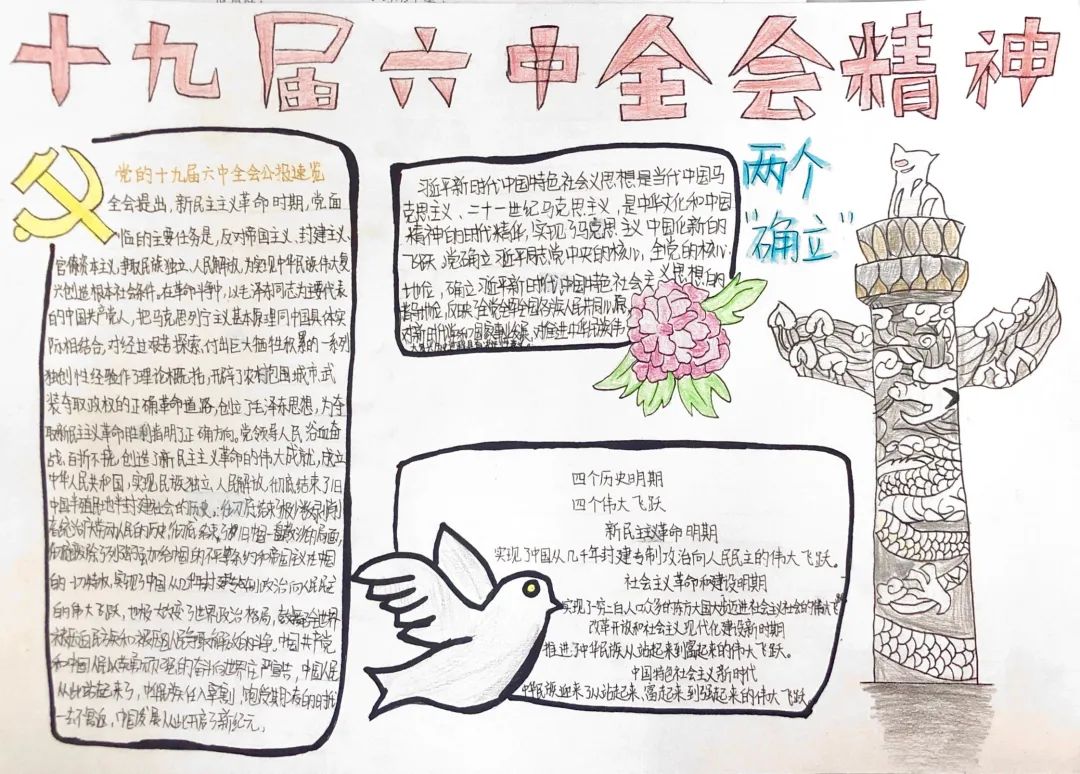 十九届六中全会精神
党的十九届六中全会公报速览
全会提出，新民主主义革命时期，党面
临的主要任务是，反对帝国主义、封建主义、
官僚资本主义，争取民族独立、人民解放，为实现中华民族伟大复
兴创造根本社会条件。在革命斗争中，以毛泽东同志为主要代表
的中国共产党人，把马克思列宁主义基本原理同中国具体实
际相结合，对经过艰苦探索、付出巨大牺牲积累的一系列
独创性经验作了理论概括，开辟了农村包围城市、武
装夺取政权的正确革命道路，创立了毛泽东思想，为夺
取新民主主义革命胜利指明了正确方向。党领导人民浴血奋
战、百折不挠，创造了新民主主义革命的伟大成就，成立
中华人民共和国，实现民族独立、人民解放，彻底结束了旧
中国半殖民地半封建社会的历史，彻底结束极少数剥削
者统治广大劳动人民的历史，彻底结束了旧中国一盘散沙的局面，
彻底废除了列强强加给中国的不平等条约和帝国主义在中国
的一切特权，实现了中国从几千年封建专制政治向人民民主
的伟大飞跃，也极大改变了世界政治格局，鼓舞了全世界
被压迫民族和被压迫人民争取解放的斗争。中国共产党
和中国人民以英勇顽强的奋斗向世界庄严宣告，中国人民
从此站起来了，中华民族任人宰割、饱受欺凌的时代
一去不复返，中国发展从此开启了新纪元。
两个
“确立”
习近平新时代中国特色社会主义思想是当代中国马
克思主义、二十一世纪马克思主义，是中华文化和中国
精神的时代精华，实现了马克思主义中国化新的
飞跃。党确立习近平同志党中央的核心、全党的核心
地位，确立习近平新时代中国特色社会主义思想的
指导地位，反映了全党全军全国各族人民共同心愿，
对新时代党和国家事业发展、对推进中华民族伟
四个历史明期
四个伟大飞跃
新民主主义革命明期
实现了中国从几千年封建专制政治向人民民主的伟大飞跃。
社会主义革命和建设明期
实现了一穷二白、人口众多的东方大国大步迈进社会主义社会的伟大飞
改革开放和社会主义现代化建设新时期
推进了中华民族从站起来到富起来的伟大飞跃。
中国特色社会主义新时代
中华民族迎来了从站起来、富起来到强起来的伟大飞跃。